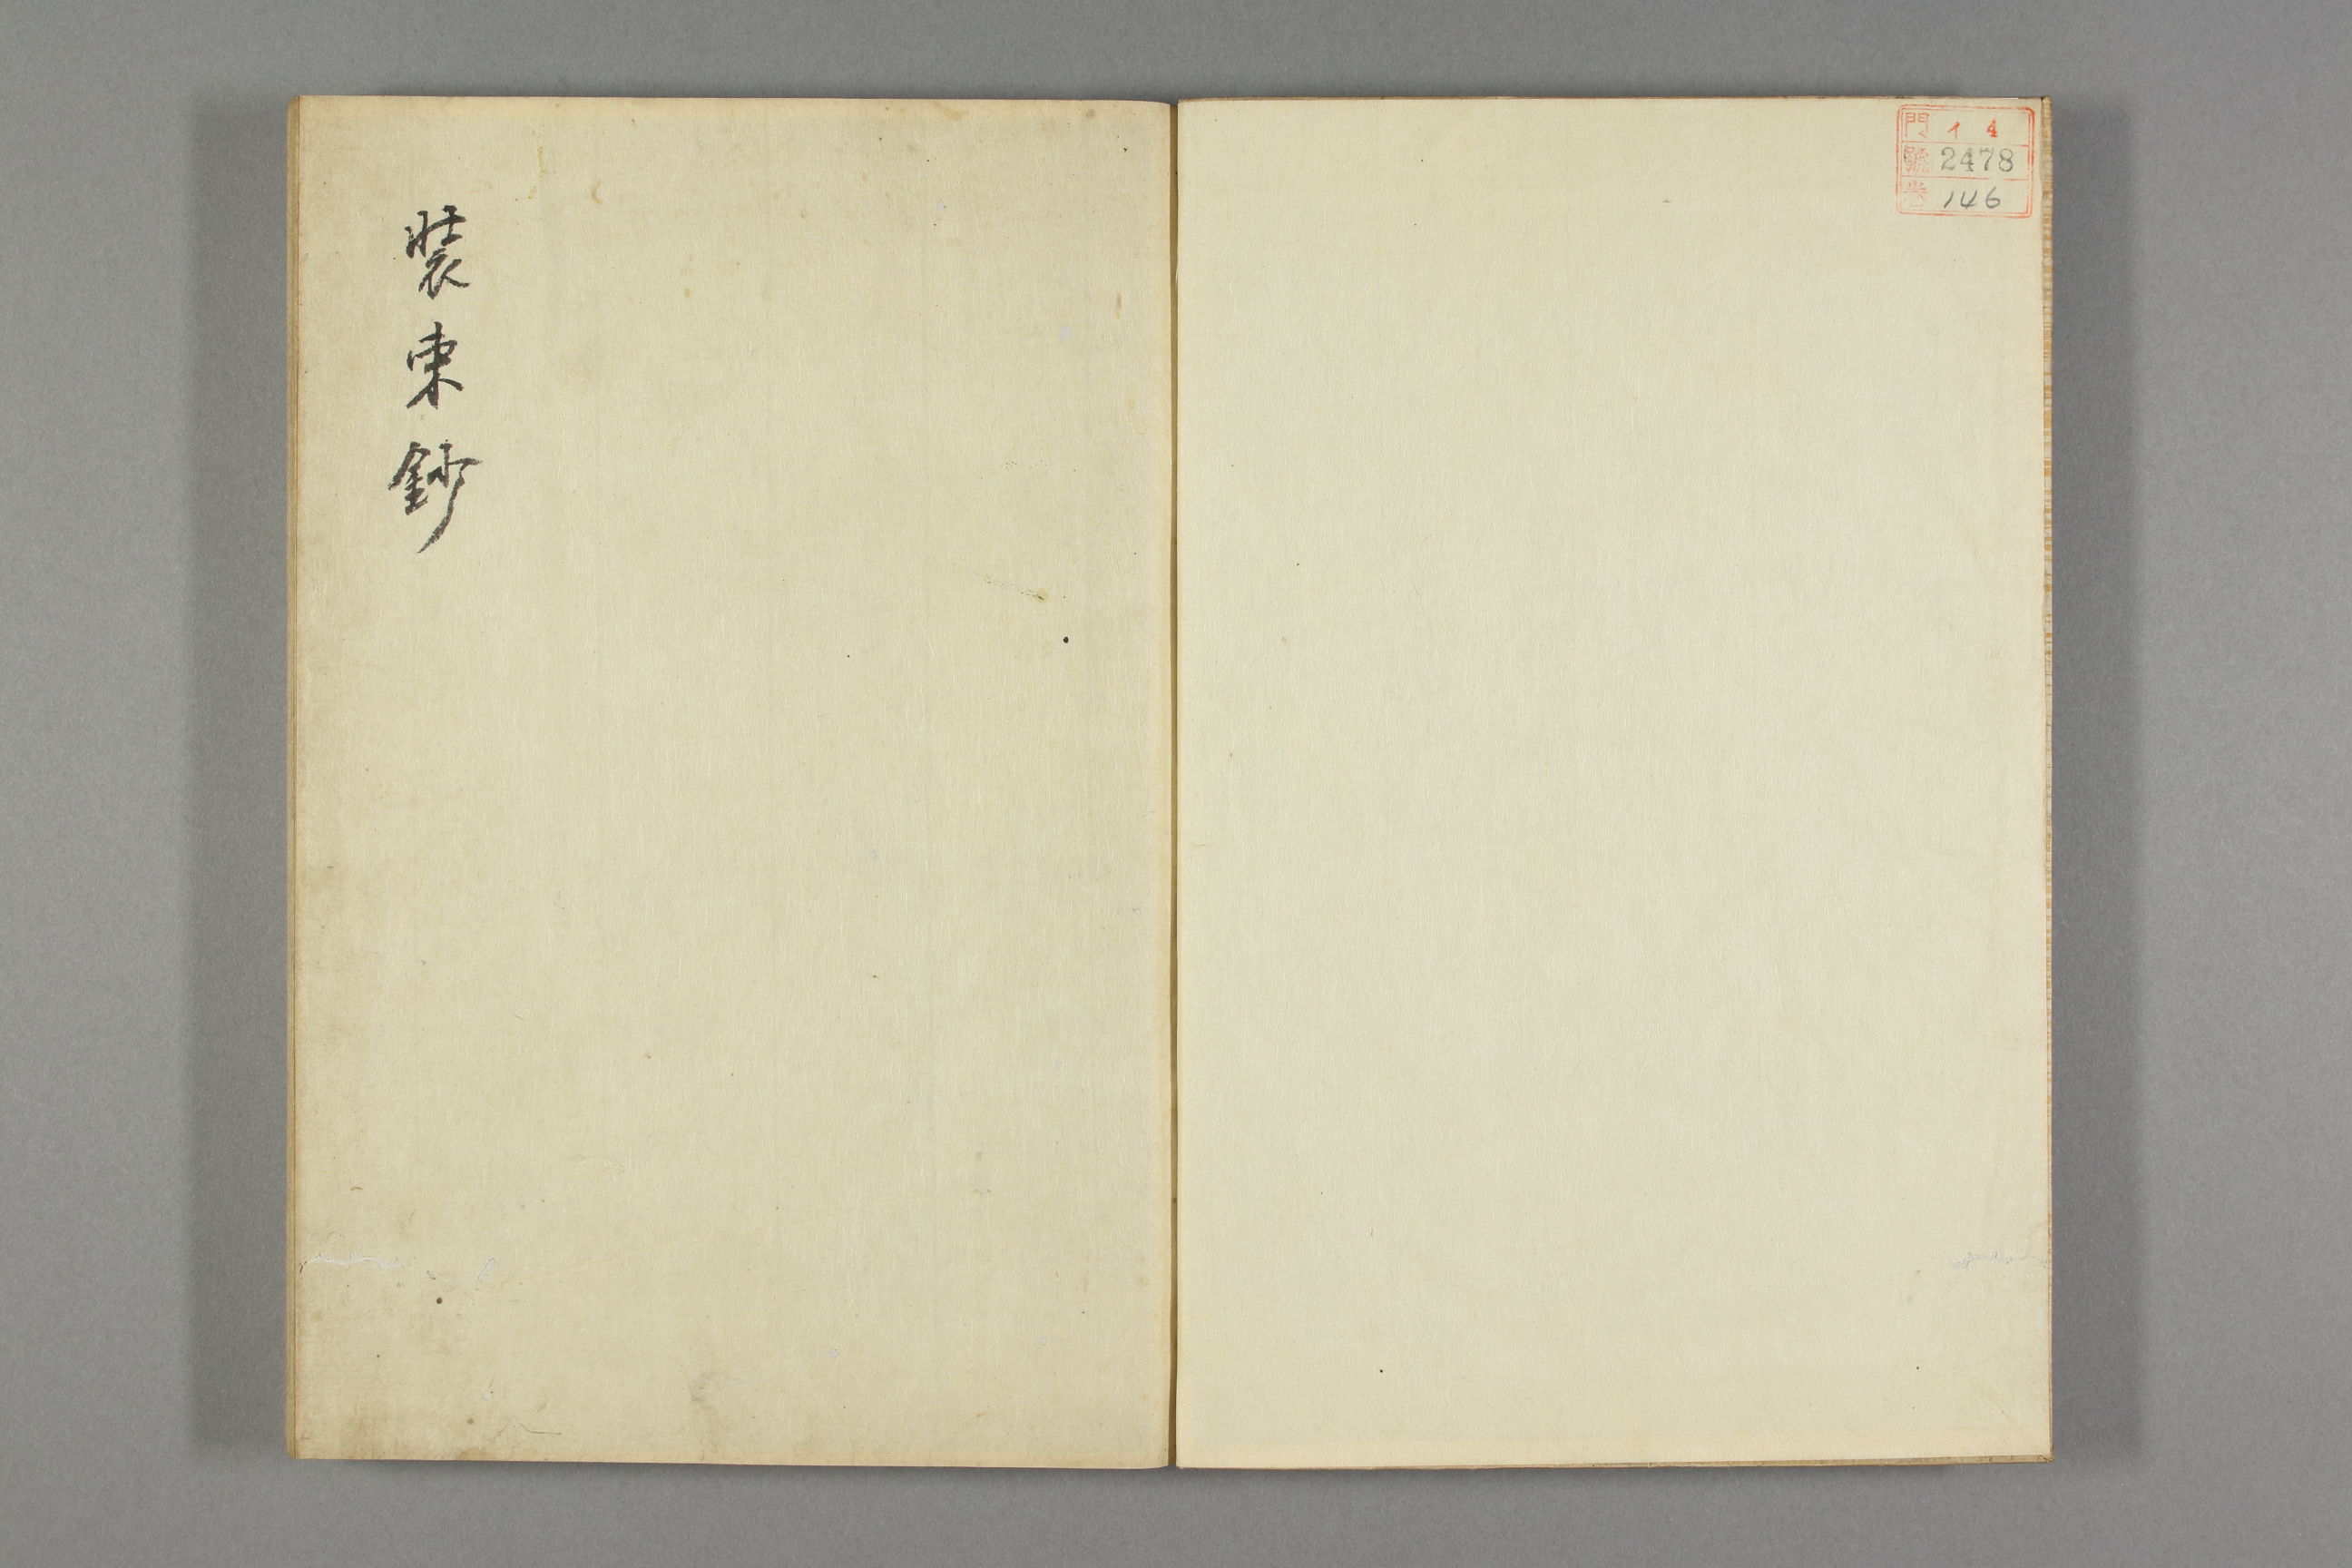 門 イ 4
號 2478
卷 146
装束鈔